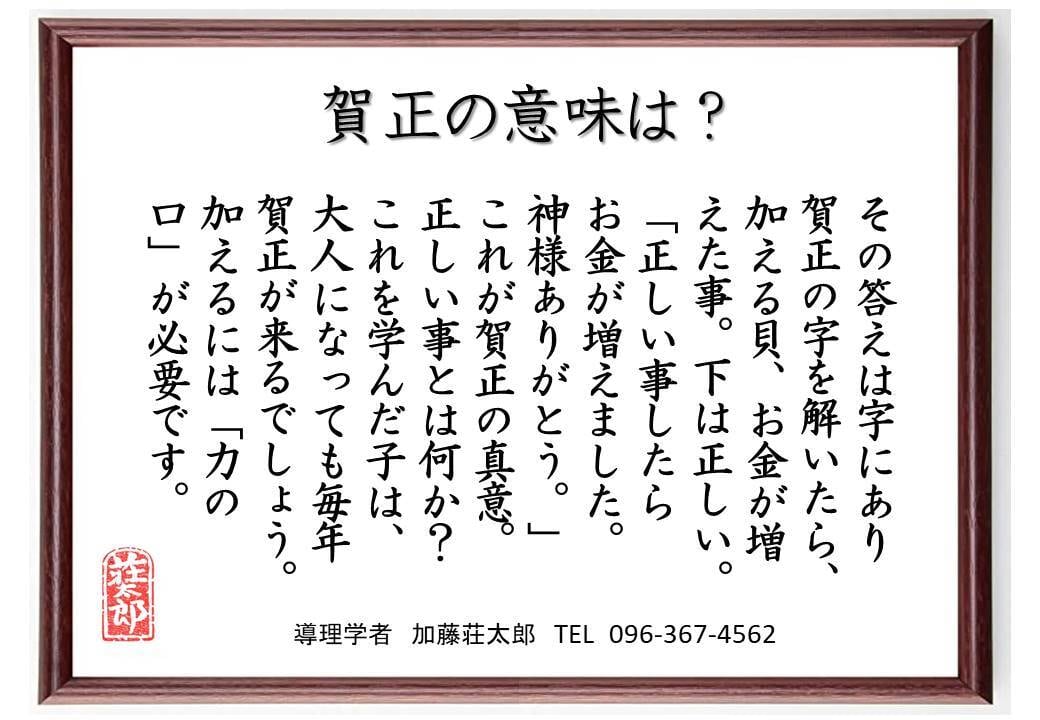 賀正の意味は？
その答えは字にあり
賀正の字を解いたら、
加える貝、お金が増
えた事。下は正しい。
「正しい事したら
お金が増えました。
神様ありがとう。」
これが賀正の真意。
正しい事とは何か？
これを学んだ子は、
大人になっても毎年
賀正が来るでしょう。
加えるには「力の
口」が必要です。
荘太郎
導理学者 加藤荘太郎 TEL 096-367-4562